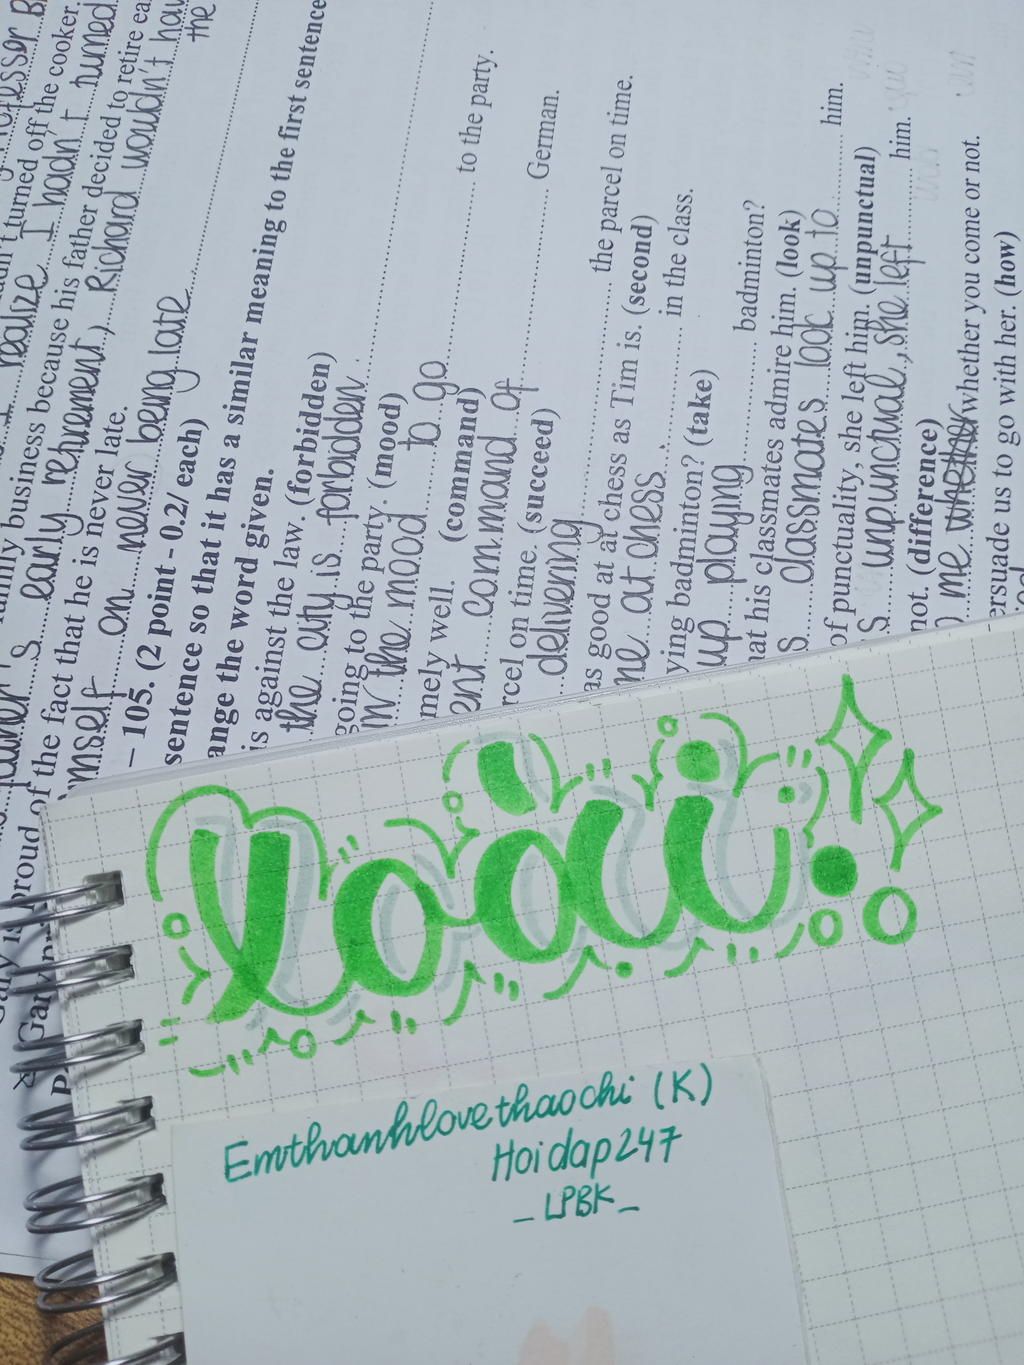 realize I hadn't turned
business because his father decided to retire
early retirement, Richard wouldn't
the
the fact that he is never late.
on never being late
– 105. (2 point - 0.2/ each)
sentence so that it has a similar meaning to the first sentence
ange the word given.
is against the law. (forbidden)
the city is forbidden.
going to the party. (mood)
in the mood to go to the party.
mely well. (command)
ent command of German.
rcel on time. (succeed)
delivering the parcel on time.
as good at at chess as Tim is. (second)
me at chess. in the class.
ying badminton? (take)
up playing badminton?
hat his classmates admire him. (look)
s classmates look up to him.
of punctuality, she left him. (unpunctual)
s unpunctual, she left him.
not. (difference)
me whether whether you come or not.
ersuade us to go with her. (how)
loài
Emthanhlovethaochi (K)
Hoidap247
_ LPBK _